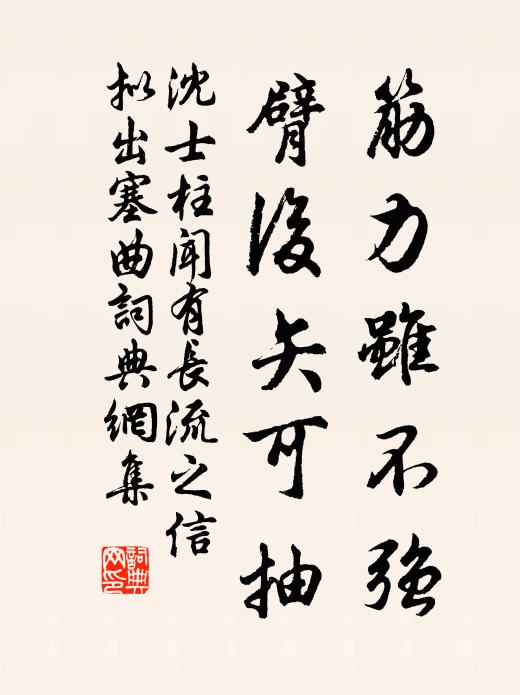 筋力雖不強
臂後矢可抽
沈士柱聞有長流之信
拟出塞曲詞典網集
詞典网印